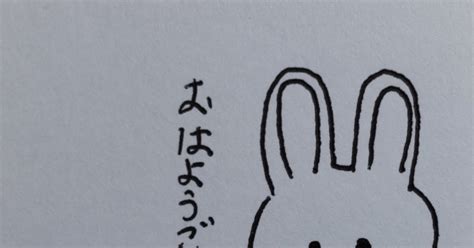 おはようご